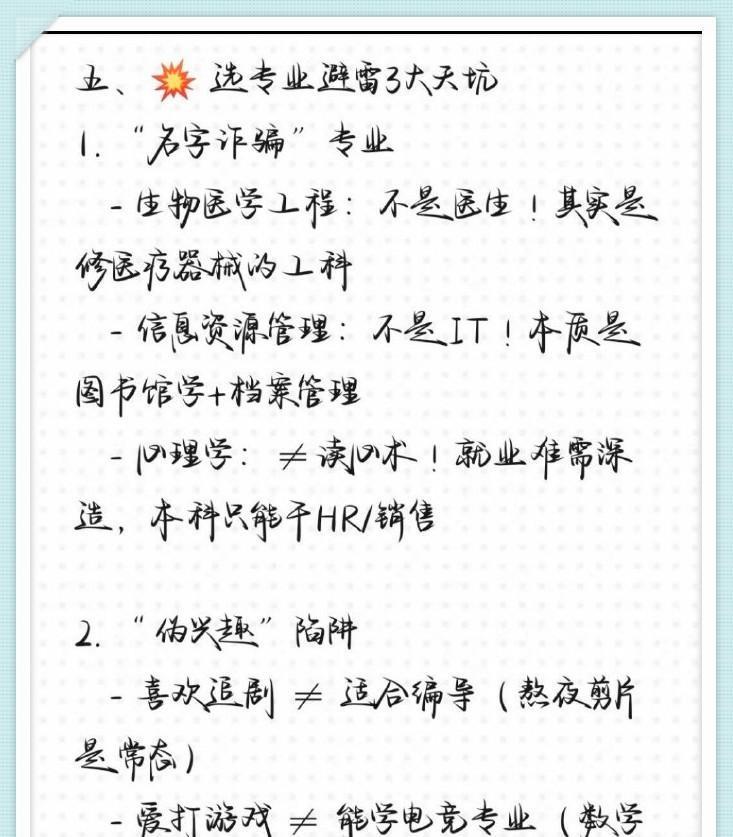 五、💥 选专业避雷3大天坑
1. “名字诈骗”专业
- 生物医学工程：不是医生！其实是
修医疗器械的工科
- 信息资源管理：不是IT！本质是
图书馆学+档案管理
- 心理学：≠读心术！就业难需深
造，本科只能干HR/销售
2. “伪兴趣”陷阱
- 喜欢追剧 ≠ 适合编导（熬夜剪片
是常态）
- 爱打游戏 ≠ 能学电竞专业（数学